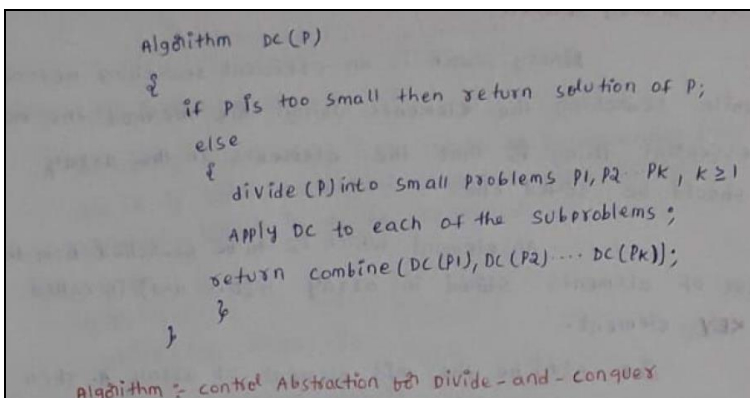 Algorithm DC(P)
{
if P is too small then return solution of P;
else
{
divide (P) into small problems P1, P2 ... PK, K ≥ 1
Apply DC to each of the subproblems;
return combine (DC(P1), DC(P2) .... DC(PK));
}
}
Algorithm :- control Abstraction for Divide-and-conquer